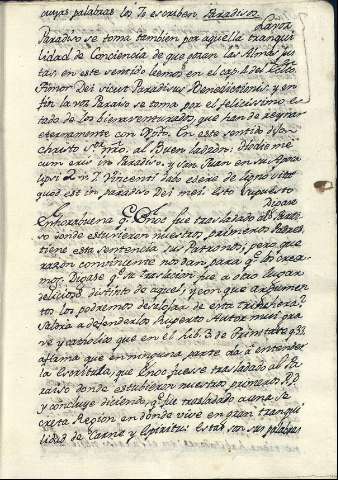 cuyas palabras los 70 escriben Paradisos
La voz
Paradiso se toma tambien por aquella tranqui
lidad de Conciencia de que gozan las Almas jus
tas, en este sentido leemos en el cap. 4 del
Timor Dei sicut Paradisus Benedictionis, y en
fin la voz Paraiso se toma por el felicissimo es
tado de los bienaventurados, que han de reynar
eternamente con Xpto. En este sentido dijo
Christo Sr. nro. al Buen ladron: Hodie me
cum eris in Paradiso. y San Juan en su Apoca
lipsi 2 n. 7 Vincenti dabo edere de ligno vitæ
quod est in paradiso Dei mei. Esto supuesto
Digase
Enhorabuena q. Enoc fue trasladado al Parai
so donde estuvieron nuestros primeros Padres
tiene esta sentencia sus Patronos; pero que
razon convincente nos dan para q. los crea
mos? Digase q. su traslacion fue a otro lugar
delicioso, distinto de aquel, y con que argumen
tos los podremos desalojar de esta trinchera?
Saldra a defenderlos Ruperto Autor mui gra
ve y catholico que en el lib. 3 de Trinitate
afirma que en ninguna parte da a entender
la Escritura, que Enoc fuesse trasladado al Pa
raiso donde estubieron nuestros primeros P.P.
y concluye diciendo, q. fue trasladado a una Se
creta Region en donde vive en gran tranqui
lidad de Carne y Espiritu. Estas son sus palabras